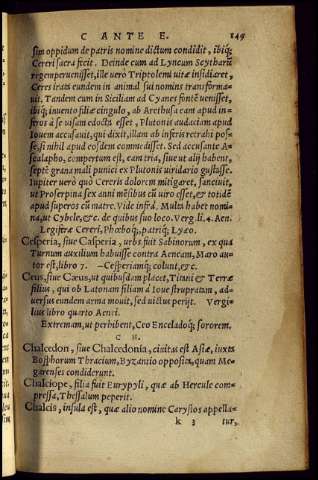 C ANTE E. 149
sim oppidum de patris nomine dictum condidit, ibiq;
Cereri sacra fecit. Deinde cum ad Lyncum Scytharũ
regem peruenisset, ille vero Triptolemi uitæ insidiaret,
Ceres iratæ eundem in animal sui nominis transforma-
uit, Tandem cum in Siciliam ad Cyanes fontẽ venisset,
ibiq; inuento filiæ cingulo, ab Arethusa eam apud in-
feros à se uisam edocta esset, Plutonis audaciam apud
Iouem accusauit, qui dixit, illam ab inferis retrahi pos-
se, si nihil apud eosdem comedisset. Sed accusante A-
scalapho, compertum est, eam tria, siue ut alij habent,
septẽ grana mali punici ex Plutonis viridario gustasse.
Iupiter uerò quò Cereris dolorem mitigaret, sanciuit,
ut Proserpina sex anni mẽsibus cũ uiro esset, & totidẽ
apud superos cũ matre. Vide infrà. Multa habet nomi-
na, ut Cybele, &c. de quibus suo loco. Verg. li. 4. Aen.
Legiferæ Cereri, Phœboq;, patriq; Lyæo.
Cesperia, siue Casperia, urbs fuit Sabinorum, ex qua
Turnum auxilium habuisse contra Aencam, Maro au-
tor est, libro 7. – Cesperiamq; colunt, &c.
Ceus, siue Cæus, ut quibusdam placet, Titani & Terræ
filius, qui ob Latonam filiam à Ioue stupratam, ad-
uersus eundem arma mouit, sed uictus perijt. Vergi-
lius libro quarto Aenei.
Extremam, ut perhibent, Ceo Enceladoq; sororem.
C H.
Chalcedon, siue Chalcedonia, ciuitas est Asiæ, iuxta
Bosphorum Thracium, Byzantio opposita, quam Me-
garenses condiderunt.
Chalciope, filia fuit Eurypyli, quæ ab Hercule com-
pressa, Thessalum peperit.
Chalcis, insula est, quæ alio nomine Carystos appella-
k 3 tur,